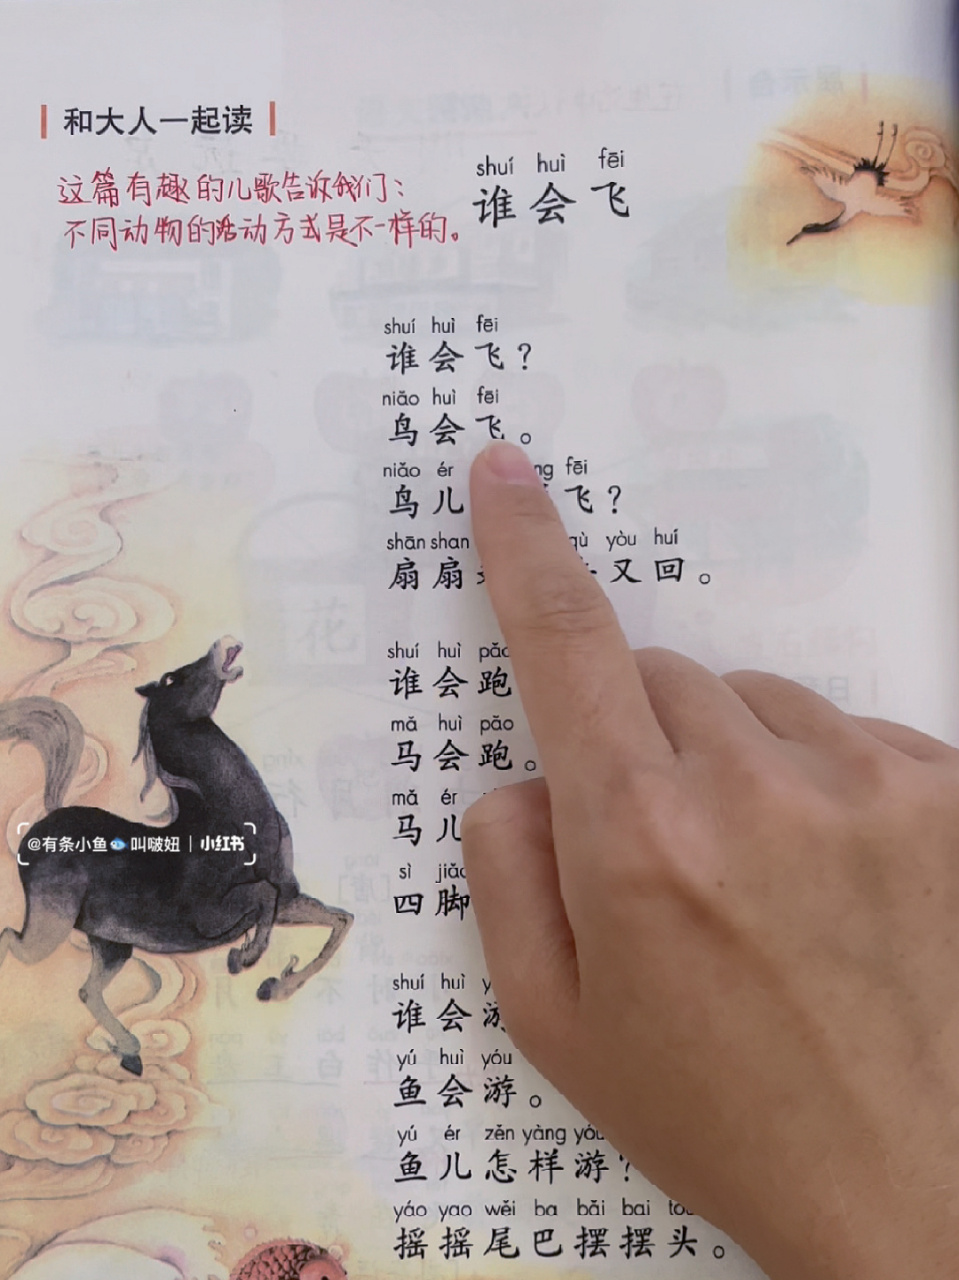 和大人一起读
这篇有趣的儿歌告诉我们：
不同动物的活动方式是不一样的。
shuí huì fēi
谁会飞
shuí huì fēi
谁会飞？
niǎo huì fēi
鸟会飞。
niǎo ér fēi
鸟儿 飞？
shān shan qù yòu huí
扇扇 又回。
shuí huì pǎo
谁会跑
mǎ huì pǎo
马会跑。
mǎ ér
马儿
sì jiǎo
四脚
shuí huì
谁会游
yú huì yóu
鱼会游。
yú ér zěn yàng yóu
鱼儿怎样游？
yáo yao wěi ba bǎi bai tóu
摇摇尾巴摆摆头。
@有条小鱼🐟叫啵妞 | 小红书